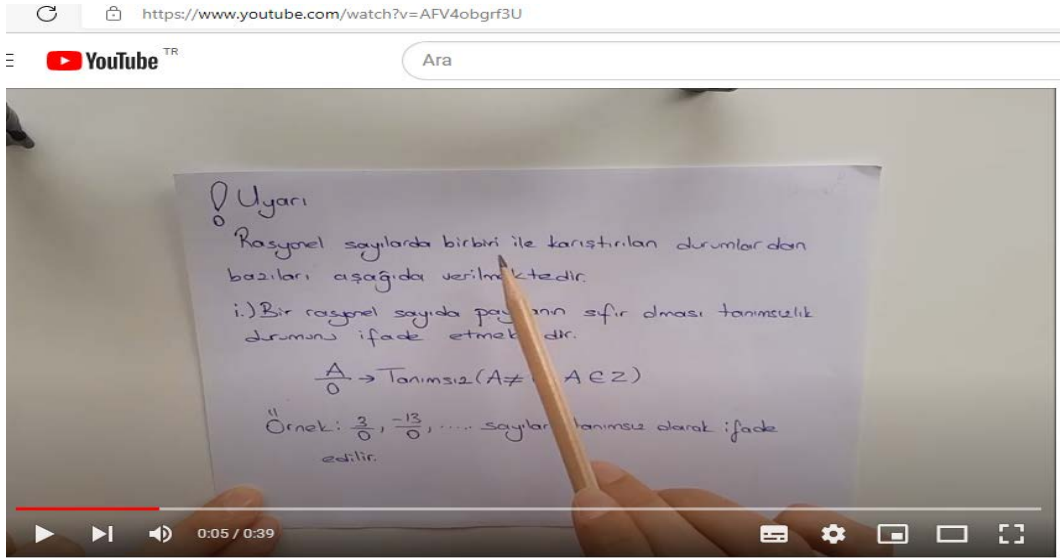 https://www.youtube.com/watch?v=AFV4obgrf3U
YouTube TR
Ara
Uyarı
Rasyonel sayılarda birbiri ile karıştırılan durumlardan
bazıları aşağıda verilmektedir.
i.) Bir rasyonel sayıda sıfır olması tanımsızlık
durumunu ifade
A/0 → Tanımsız (A≠ A∈Z)
Örnek: 3/0, -13/0, ..... olarak ifade
edilir.
0:05 / 0:39